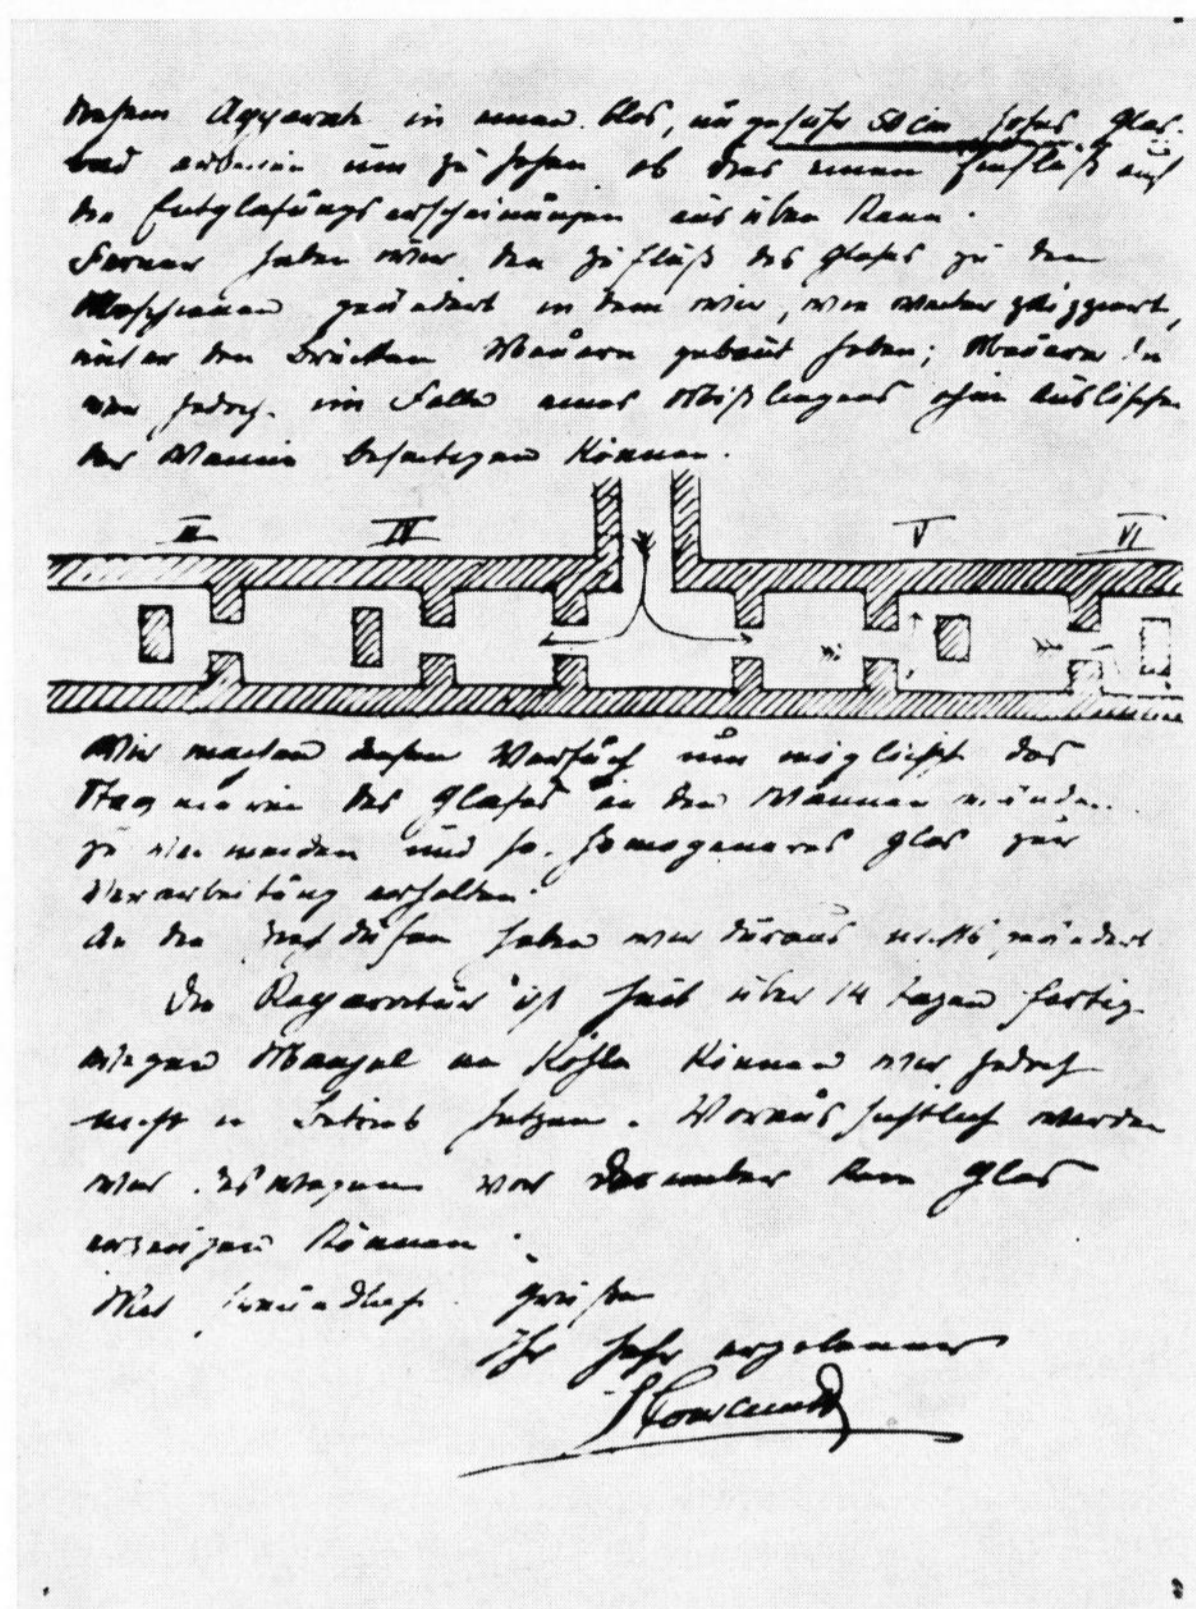 diesem Apparate in einem blos, ungefähr 50 cm hohes Glas-
bad arbeiten um zu sehen ob dies einen Einfluß auf
die Entglasungserscheinungen ausüben kann.
Ferner haben wir den Zufluß des Glases zu den
Maschinen geändert in dem wir, wie weiter skizziert,
unter den Brücken Mauern gebaut haben; Mauern die
wir jedoch im Falle eines Mißlingens ohne Auslöschen
der Wanne beseitigen können.
II IV V VI
Wir machen diesen Versuch um möglichst das
Stagnieren des Glases in den Wannen
zu vermeiden und so homogeneres Glas zur
Verarbeitung erhalten.
An den Ziehdüsen haben wir duraus nichts geändert
Die Reparatur ist seit über 14 Tagen fertig
wegen Mangel an Kohle können wir jedoch
nicht in Betrieb setzen. Voraussichtlich werden
wir deswegen vor Dezember kein Glas
erzeugen können.
Mit freundlich. Grüßen
Ihr sehr ergebener